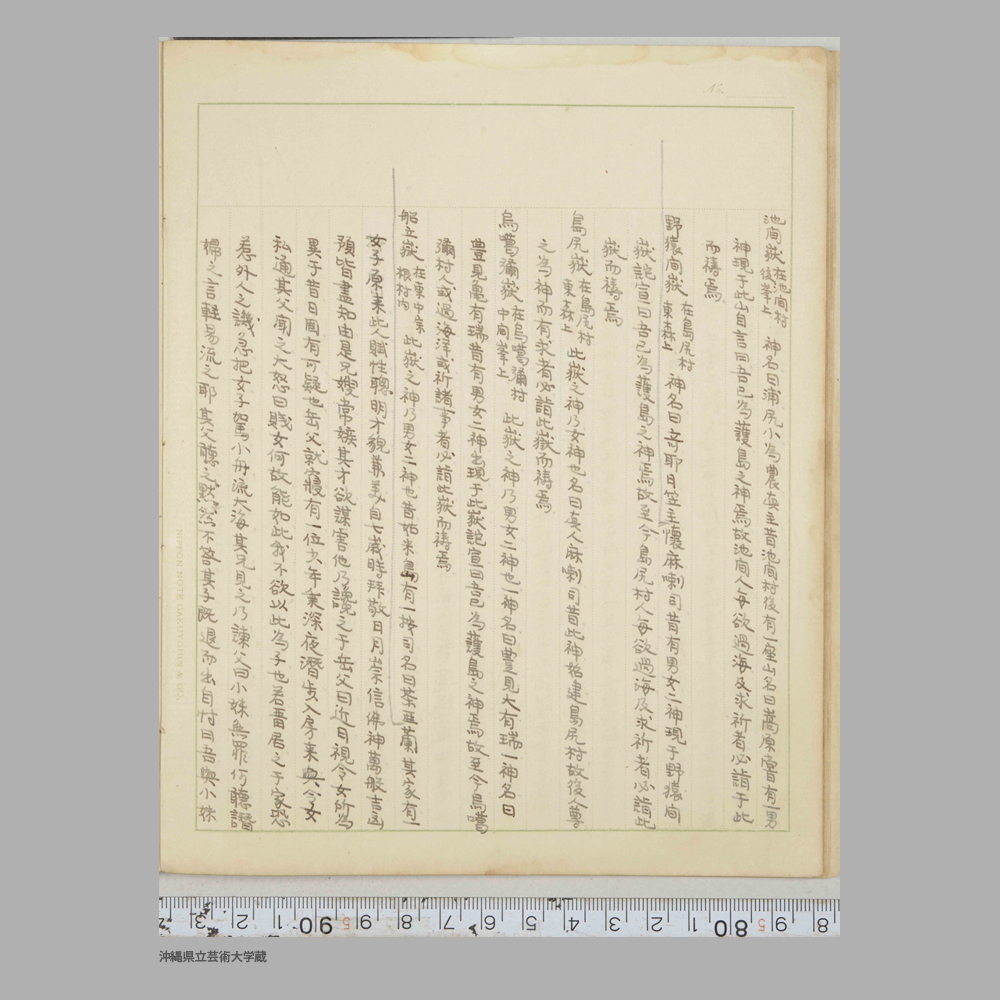 16.
池间嶽 在池间村後峯上 神名曰浦尻小為農真主昔池间村後有一座山名曰蒿原嘗有一男
神現于此山自言曰吾已為護島之神焉故池间人每欲過海及求祈者必詣于此
而禱焉
野猿间嶽 在島尻村東森上 神名曰奇耶日笠主懷麻喇司昔有男女二神現于野猿间
嶽說宣曰吾已為護島之神焉故至今島尻村人每欲過海及求祈者必詣此
嶽而禱焉
島尻嶽 在島尻村東森上 此嶽之神乃女神也名曰真人麻喇司昔此神始建島尻村故後人尊
之為神而有求者必詣此嶽而禱焉
烏噶彌嶽 在烏噶彌村中间峯上 此嶽之神乃男女二神也一神名曰豊見大有瑞一神名曰
豊見亀有瑞昔有男女二神出現于此嶽說宣曰吾已為護島之神焉故至今烏噶
彌村人或過海洋或祈諸事者必詣此嶽而禱焉
船立嶽 在東仲宗根村内 此嶽之神乃男女二神也昔始米島有一按司名曰茶亞蘭其家有一
女子原来此人賦性聰明才貌兼美自七歲時拜敬日月崇信佛神萬般吉凶
預皆盡知由是兄嫂常嫉其才欲謀害他乃讒之于岳父曰近日視令女所為
異于昔日固有可疑也岳父就寢有一位少年乗深夜潛步入房来與令女
私通其父聞之大怒曰賤女何故能如此我不欲以此為子也若畱居之于家恐
惹外人之譏急把女子駕小舟流大海其兄見之乃諫父曰小妹無罪何聽讒
婦之言軽易流之耶其父聽之黙然不答其子既退而出自忖曰吾與小妹
NIPPON NOTE GAKUYOHIN & CO.
8 9 5 80 1 2 3 4 5 6 7 8 9 5 90 1 2 3
沖縄県立芸術大学蔵